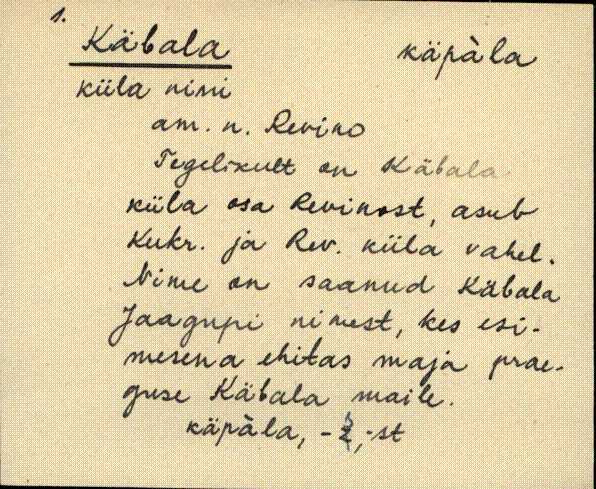 1.
Käbala käpàla
küla nimi
am. n. Revino
Tegelikult on Käbala
küla osa Revinost, asub
Kukr. ja Rev. küla vahel.
Nime on saanud Käbala
Jaagupi nimest, kes esi-
mesena ehitas maja prae-
guse Käbala maile.
käpàla, -z, -st